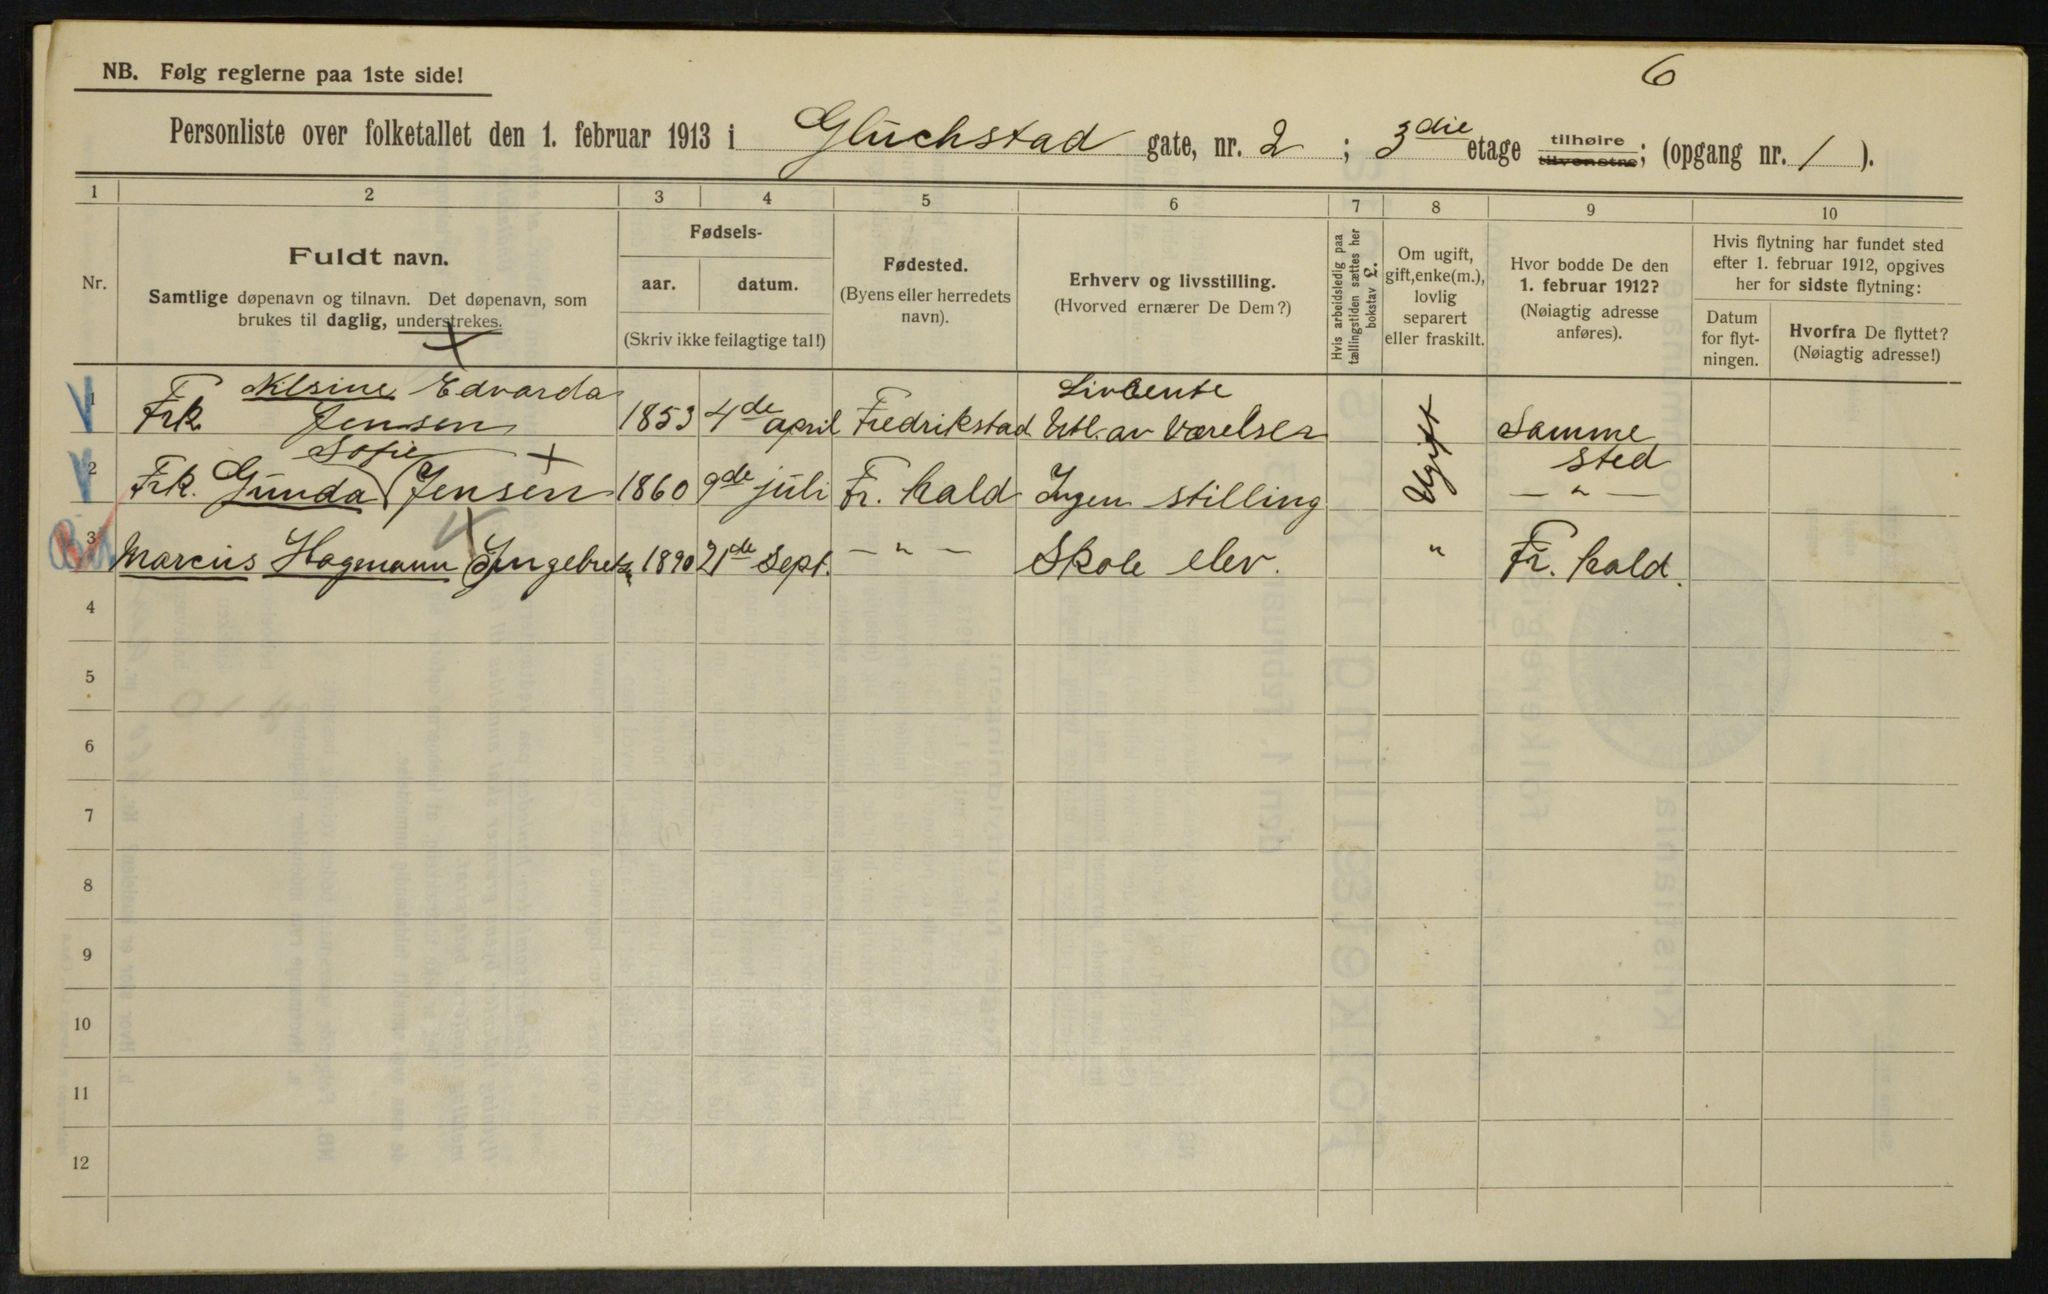 6
NB. Følg reglerne paa 1ste side!
Personliste over folketallet den 1. februar 1913 i Gluchstad gate, nr. 2 ; 3die etage tilhøire tilvenstre; (opgang nr. 1 ).
1 2 3 4 5 6 7 8 9 10
Nr.
Fuldt navn.
Samtlige døpenavn og tilnavn. Det døpenavn, som
brukes til daglig, understrekes.
Fødsels-
aar. datum.
(Skriv ikke feilagtige tal!)
Fødested.
(Byens eller herredets
navn).
Erhverv og livsstilling.
(Hvorved ernærer De Dem?)
Hvis arbeidsledig paa
tællingstiden sættes her
bokstav L.
Om ugift,
gift,enke(m.),
lovlig
separert
eller fraskilt.
Hvor bodde De den
1. februar 1912?
(Nøiagtig adresse
anføres).
Hvis flytning har fundet sted
efter 1. februar 1912, opgives
her for sidste flytning:
Datum
for flyt-
ningen.
Hvorfra De flyttet?
(Nøiagtig adresse!)
Nilsine Edvarda Livrente
1 Frk. Jensen 1853 4de april Fredrikstad Utl. av Værelser Ugift Samme
Sofie sted
2 Frk. Gunda Jensen 1860 9de juli Fr. hald Ingen stilling — " —
3 Marcus Hagemann Ingebrets. 1890 21de Sept. — " — Skole elev. " Fr. hald.
4
5
6
7
8
9
10
11
12